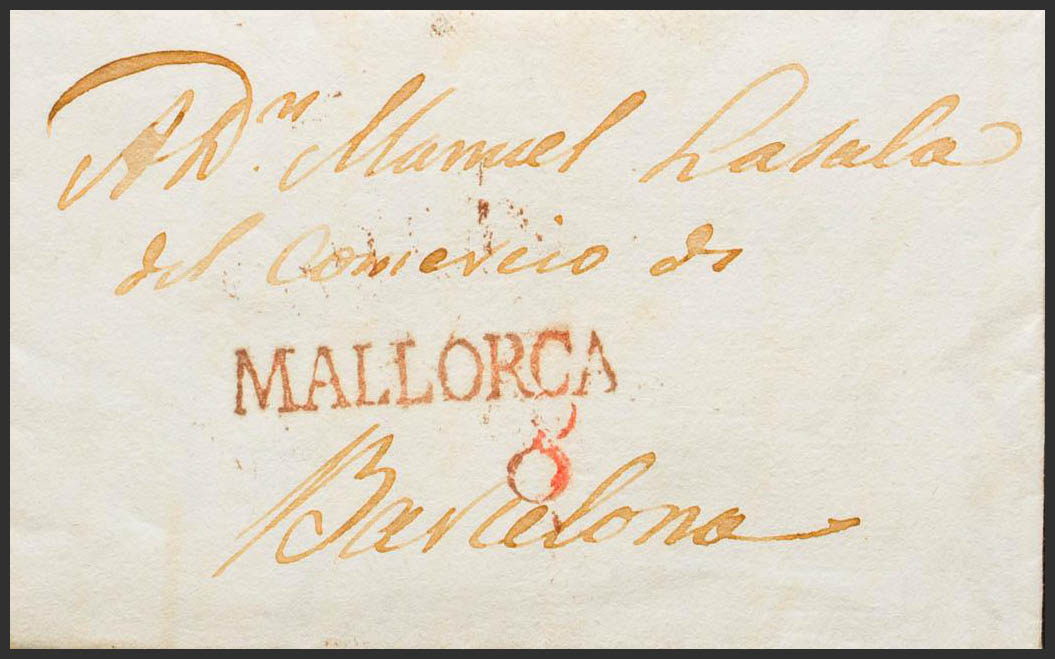 A Dn. Manuel Lasala
del Comercio de
MALLORCA
8
Barcelona